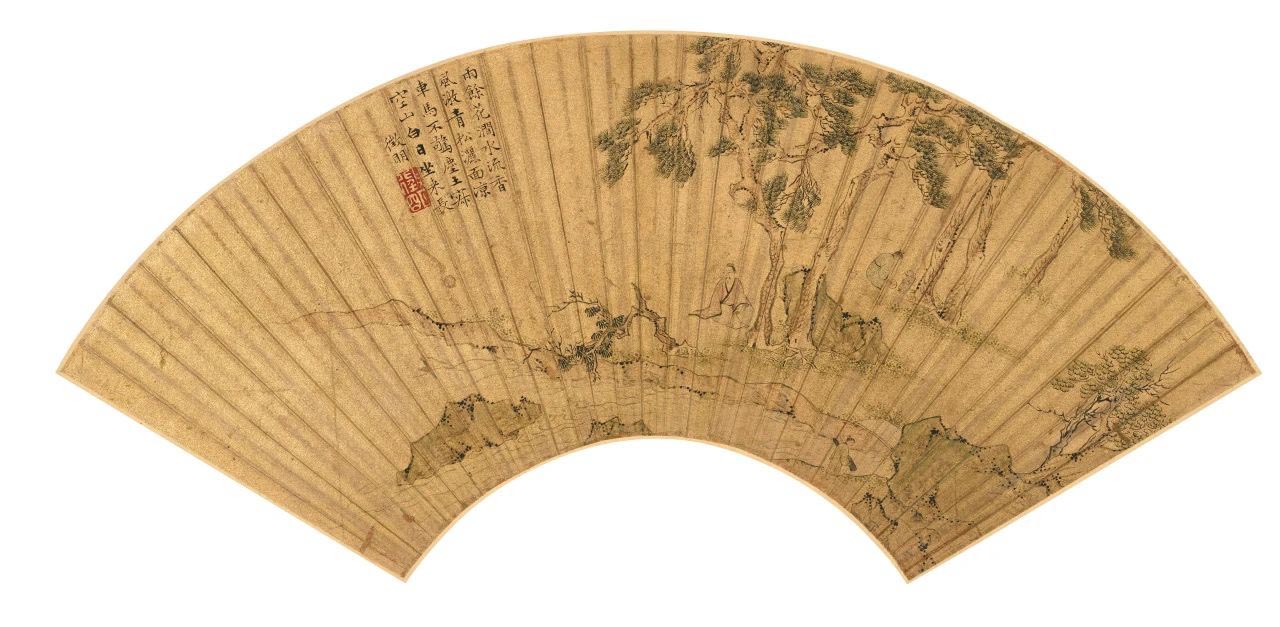 雨餘花澗水流香
風激青松灑面涼
車馬不驚塵土寂
空山白日坐來長
徵明